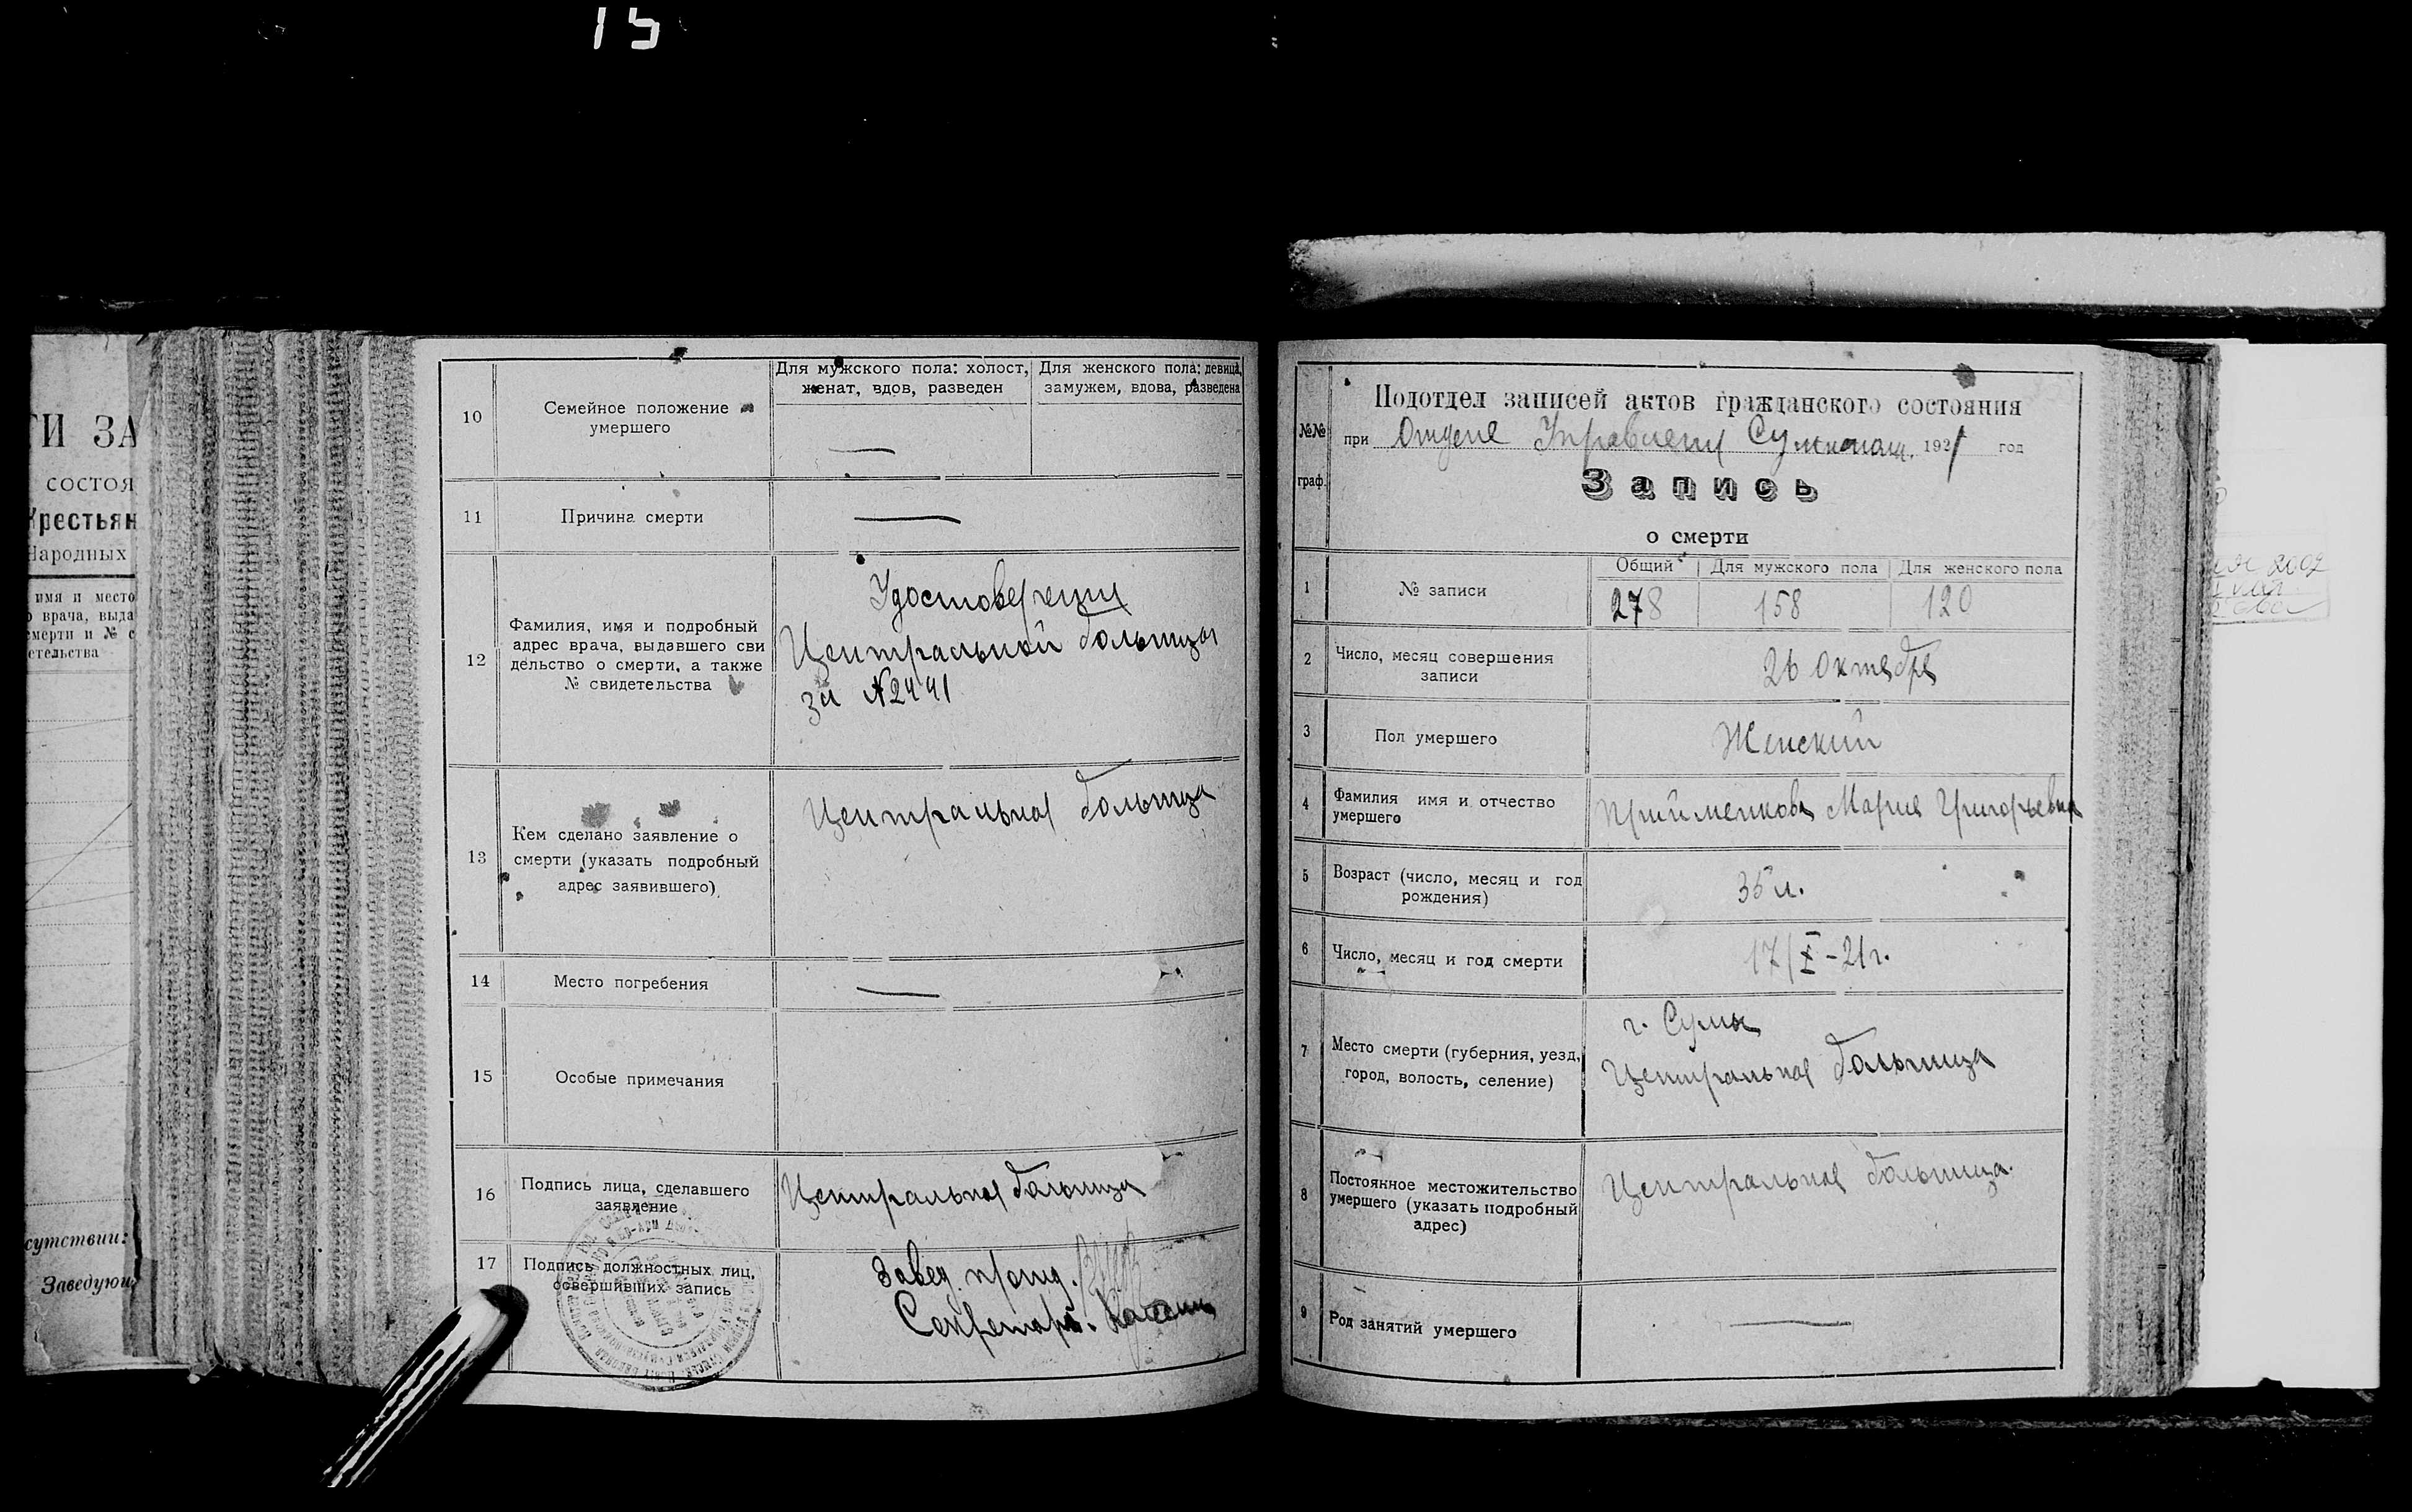 15
ТИ ЗА
СОСТОЯ
Крестьян
Народных
имя и место
о врача, выда
смерти и № с
етельства
сутствии:
Заведующ
10
Семейное положение
умершего
Для мужского пола: холост,
женат, вдов, разведен
Для женского пола: девица,
замужем, вдова, разведена
—
11
Причина смерти
—
12
Фамилия, имя и подробный
адрес врача, выдавшего сви
дельство о смерти, а также
№ свидетельства
Удостоверения
Центральной больницы
за №2441
13
Кем сделано заявление о
смерти (указать подробный
адрес заявившего)
Центральная больница
14
Место погребения
—
15
Особые примечания
16
Подпись лица, сделавшего
заявление
Центральная больница
17
Подпись должностных лиц,
совершивших запись
Завед. подотд.
Секретарь.
№№
граф.
Подотдел записей актов гражданского состояния
при Отделе Управлении 1921 год
Запись
о смерти
1
№ записи
Общий
Для мужского пола
Для женского пола
278
158
120
2
Число, месяц совершения
записи
26 октября
3
Пол умершего
Женский
4
Фамилия имя и отчество
умершего
Прийменкова Мария Григорьевна
5
Возраст (число, месяц и год
рождения)
35 л.
6
Число, месяц и год смерти
17/X-21г.
7
Место смерти (губерния, уезд,
город, волость, селение)
г. Сумы
Центральная больница
8
Постоянное местожительство
умершего (указать подробный
адрес)
Центральная больница.
9
Род занятий умершего
—
2002